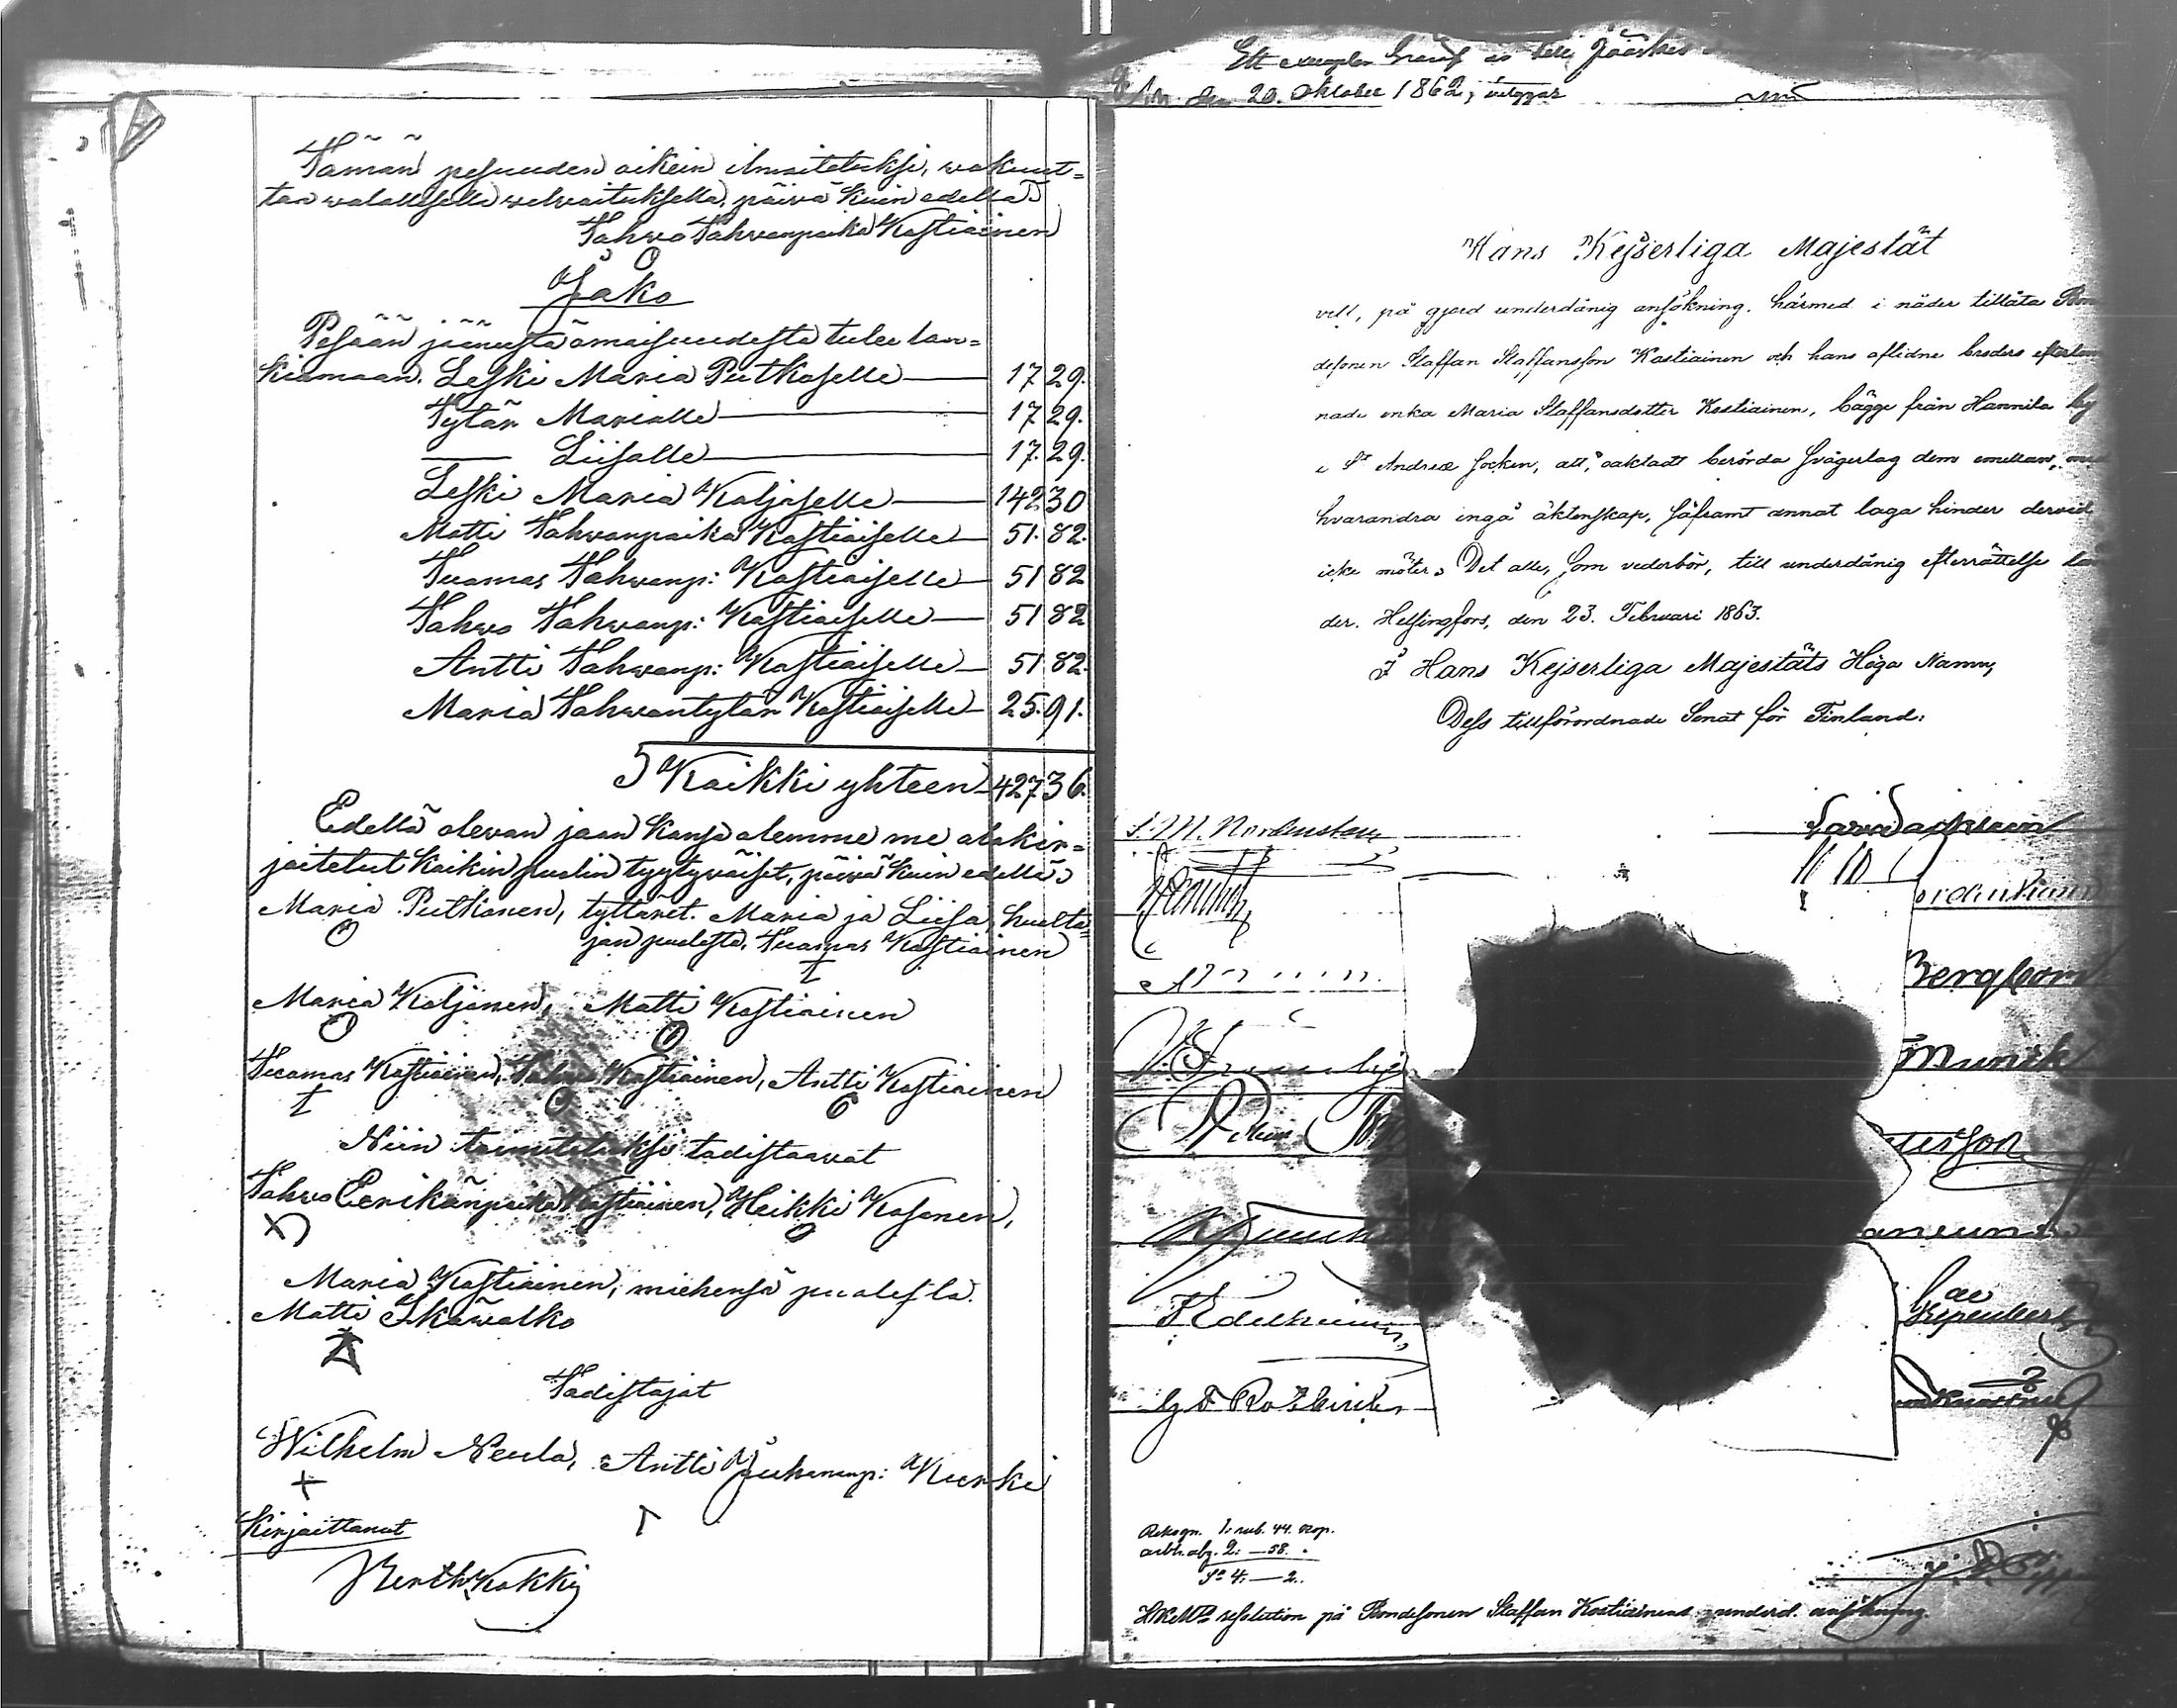 Tämän pesuuden oikein ilmoitetuksi, wakuut=
tan walallisella welwoituksella, päivä kuin edellä.
Tahwo Tahwanpoika Kostiainen
O
Jako
Pesään jäänystä omaisuudesta tulee lan=
kiamaan. Leski Maria Putkoselle — 17 29.
Tytär Marialle — 17 29.
— Liisalle — 17. 29.
Leski Maria Koljoselle — 142 30
Matti Tahwanpoika Kostiaiselle — 51. 82.
Tuomas Tahwanp: Kostiaiselle — 51 82
Tahwo Tahwanp: Kostiaiselle — 51 82
Antti Tahwanp: Kostiaiselle — 51 82.
Maria Tahwantytär Kostiaiselle — 25. 91.
Kaikki yhteen 427 36.
Edellä olevan jaon kansa olemme me alakir=
joitetut kaikin puolin tyytyväiset, päivä kuin edellä.
Maria Putkonen, tyttäret. Maria ja Liisa, huolta=
jan puolesta, Tuomas Kostiainen
Maria Koljonen, Matti Kostiainen
Tuomas Kostiainen, Tahwo Kostiainen, Antti Kostiainen
Niin toimitetuksi todistaavat
Tahwo Eerikänpoika Kostiainen, Heikki Kosonen,
Maria Kostiainen, miehensä puolesta.
Matti Ikäwalko
Todistajat
Wilhelm Neula, Antti Juhananp: Kurki
Kirjoittanut
Berth. Kokki
Ett exemplar häraf är till Jääskis
den 20. Oktober 1862, intygar
Hans Kejserliga Majestät
vill, på gjord underdånig ansökning, härmed i nåder tillåta Bon
desonen Staffan Staffansson Kostiainen och hans aflidne broders efterlem
nade enka Maria Staffansdotter Kostiainen, bägge från Hannila by
i St Andreæ socken, att, oaktadt berörda svågerlag dem emellan, med
hvarandra ingå äktenskap, såframt annat laga hinder dervid
icke möter. Det alle, som vederbör, till underdånig efterrättelse län
der. Helsingfors, den 23. Februari 1863.
I Hans Kejserliga Majestäts Höga Namn,
Dess tillförordnade Senat för Finland:
J. M. Nordenstam
Bergbom
Munck
F Edelheim
G F Rotkirch
Rekogn. 1. rub. 44. kop.
2. — 58.
Sa 4. — 2.
HKeMts resolution på Bondesonen Staffan Kostiainens underd. ansökning.